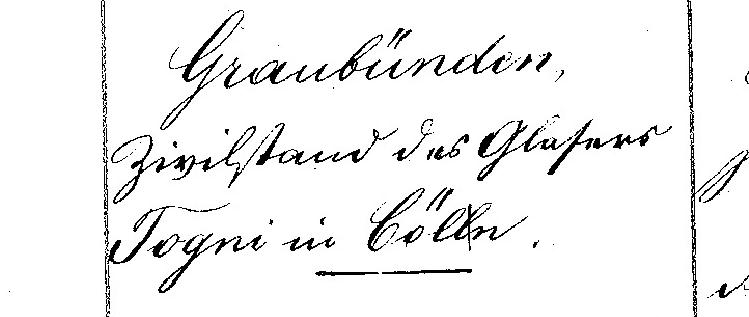 Graubünden,
Zivilstand des Glasers
Togni in Cölln.